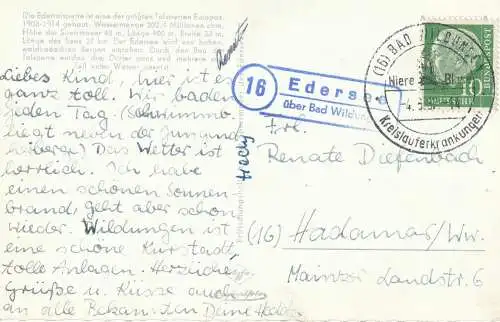 Die Edertalsperre ist eine der größten Talsperren Europas.
1908-1914 gebaut. Wassermenge 202,4 Millionen cbm.
Höhe der Sperrmauer 48 m, Länge 400 m, Breite 35 m,
Länge des Sees 27 km. Der Edersee wird von hohen
waldreichen Bergen umgeben. Durch den Bau der
Talsperre wurden drei Dörfer ganz und mehrere zum
Teil unter Wasser gesetzt.
Liebes Kind, hier ist es
ganz toll. Wir baden
jeden Tag. (Schwimmb.
liegt neben der Jugend
herberge) Das Wetter ist
herrlich. Ich habe
einen schönen Sonnen
brand, geht aber schon
wieder. Wildungen ist
eine schöne Kurstadt,
tolle Anlagen. Herzliche
Grüße u. Küsse auch
an alle Bekannten Deine
16
Edersee
über Bad Wildungen
(16) BAD WILDUNGEN
Niere Blase
Kreislauferkrankungen
DEUTSCHE BUNDESPOST
10
Frl.
Renate Diefenbach
(16) Hadamar/Ww.
Mainzer Landstr. 6